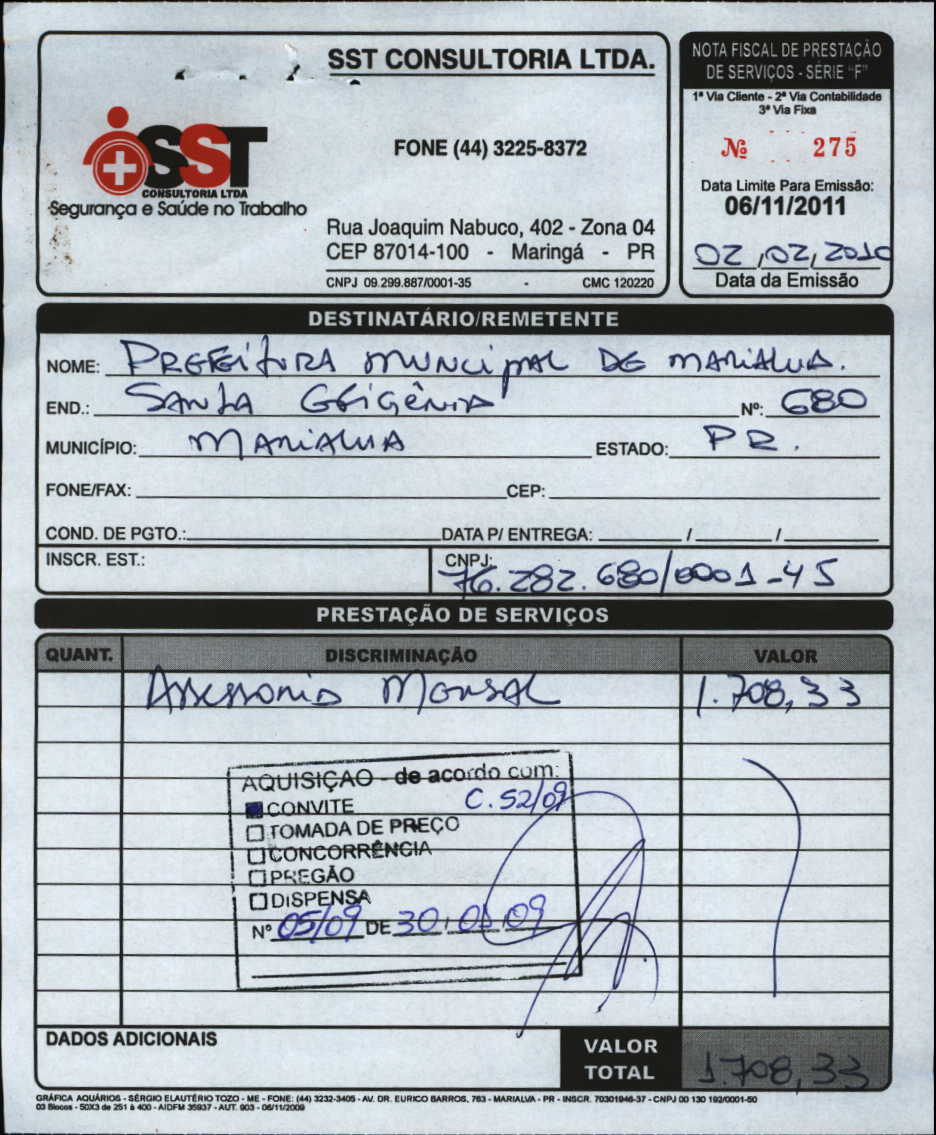 SST CONSULTORIA LTDA.
SST
CONSULTORIA LTDA
Segurança e Saúde no Trabalho
FONE (44) 3225-8372
Rua Joaquim Nabuco, 402 - Zona 04
CEP 87014-100 - Maringá - PR
CNPJ 09.299.887/0001-35 - CMC 120220
NOTA FISCAL DE PRESTAÇÃO
DE SERVIÇOS - SÉRIE "F"
1ª Via Cliente - 2ª Via Contabilidade
3ª Via Fixa
Nº 275
Data Limite Para Emissão:
06/11/2011
02,02,2010
Data da Emissão
DESTINATÁRIO/REMETENTE
NOME: PREFEITURA MUNCIPAL DE MARIALVA.
END.: SANTA EFIGÊNIA Nº: 680
MUNICÍPIO: MARIALVA ESTADO: PR.
FONE/FAX: CEP:
COND. DE PGTO.: DATA P/ ENTREGA: / /
INSCR. EST.: CNPJ: 76.282.680/0001-45
PRESTAÇÃO DE SERVIÇOS
QUANT. DISCRIMINAÇÃO VALOR
Assessoria Mensal 1.708,33
AQUISIÇAO - de acordo com:
CONVITE C. 52/09
TOMADA DE PREÇO
CONCORRÊNCIA
PREGÃO
DISPENSA
Nº 05/09 DE 30/01/09
DADOS ADICIONAIS
VALOR
TOTAL 1.708,33
GRÁFICA AQUÁRIOS - SÉRGIO ELAUTÉRIO TOZO - ME - FONE: (44) 3232-3405 - AV. DR. EURICO BARROS, 763 - MARIALVA - PR - INSCR. 70301946-37 - CNPJ 00 130 192/0001-50
03 Blocos - 50X3 de 251 à 400 - AIDFM 35937 - AUT. 903 - 06/11/2009